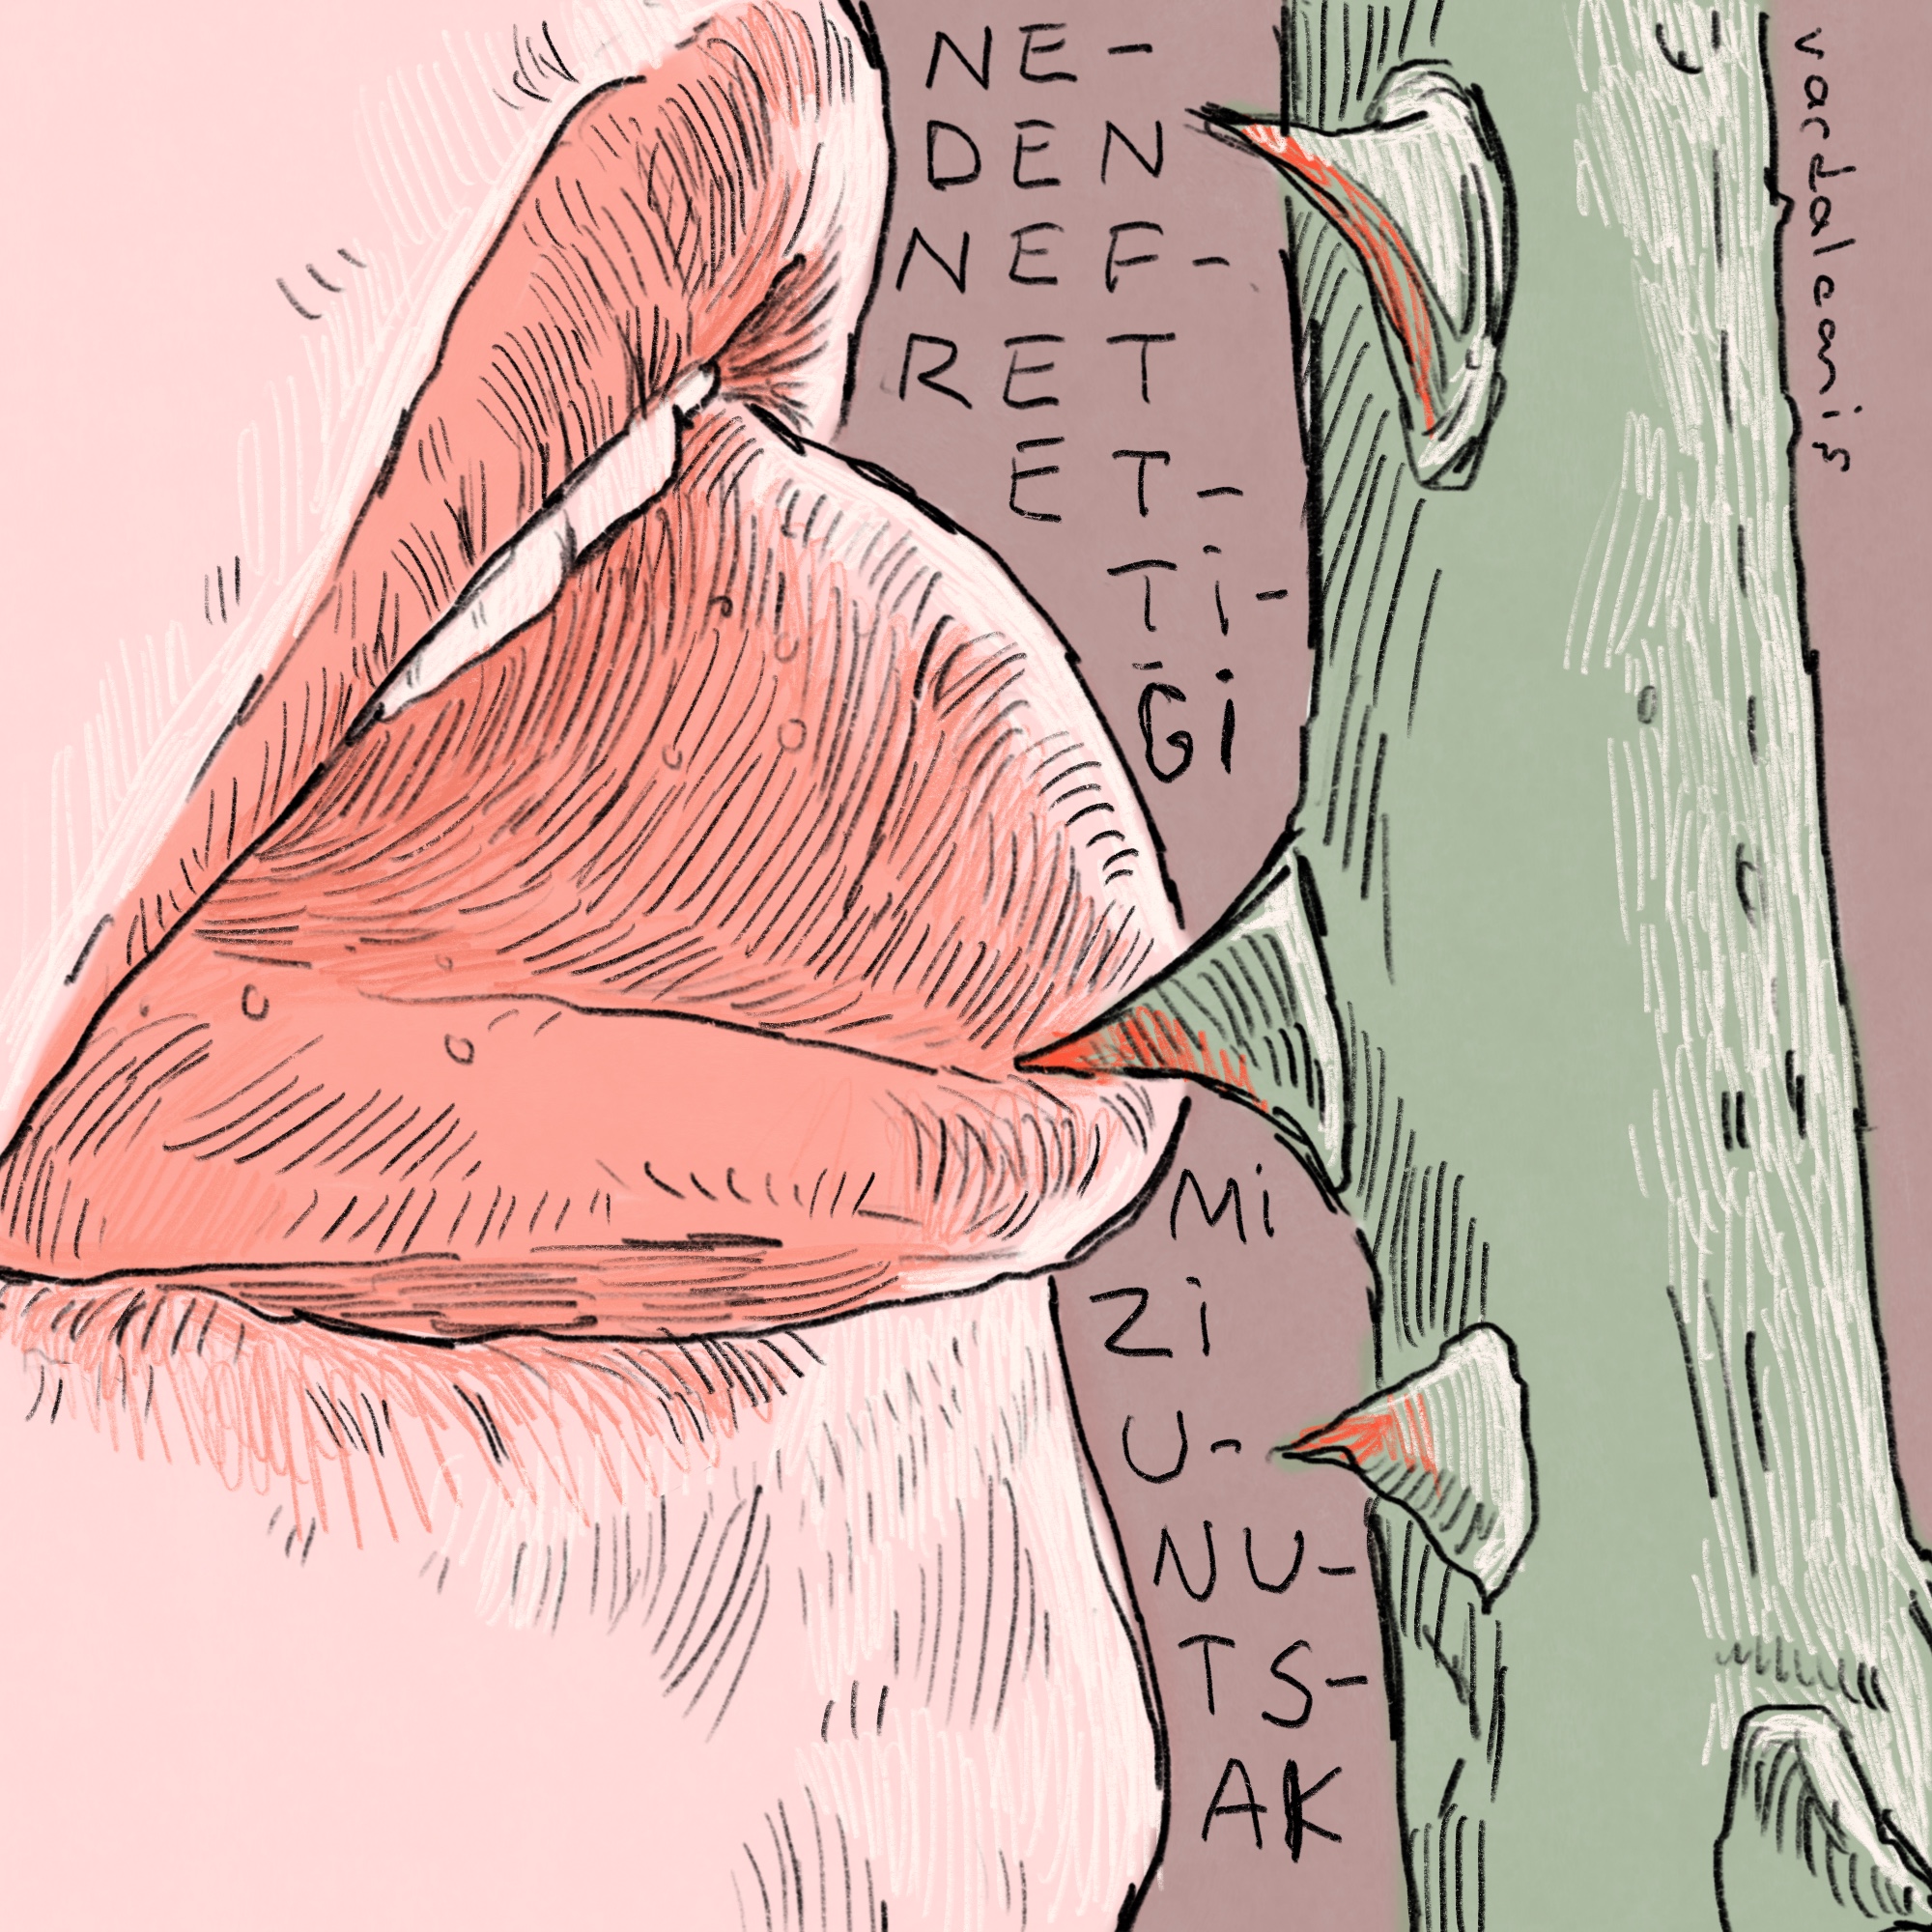 NE-
DEN
NEF-
RET
ET-
Tİ-
Ğİ
Mİ
Zİ
U-
NU-
TS-
AK
vardalcanis